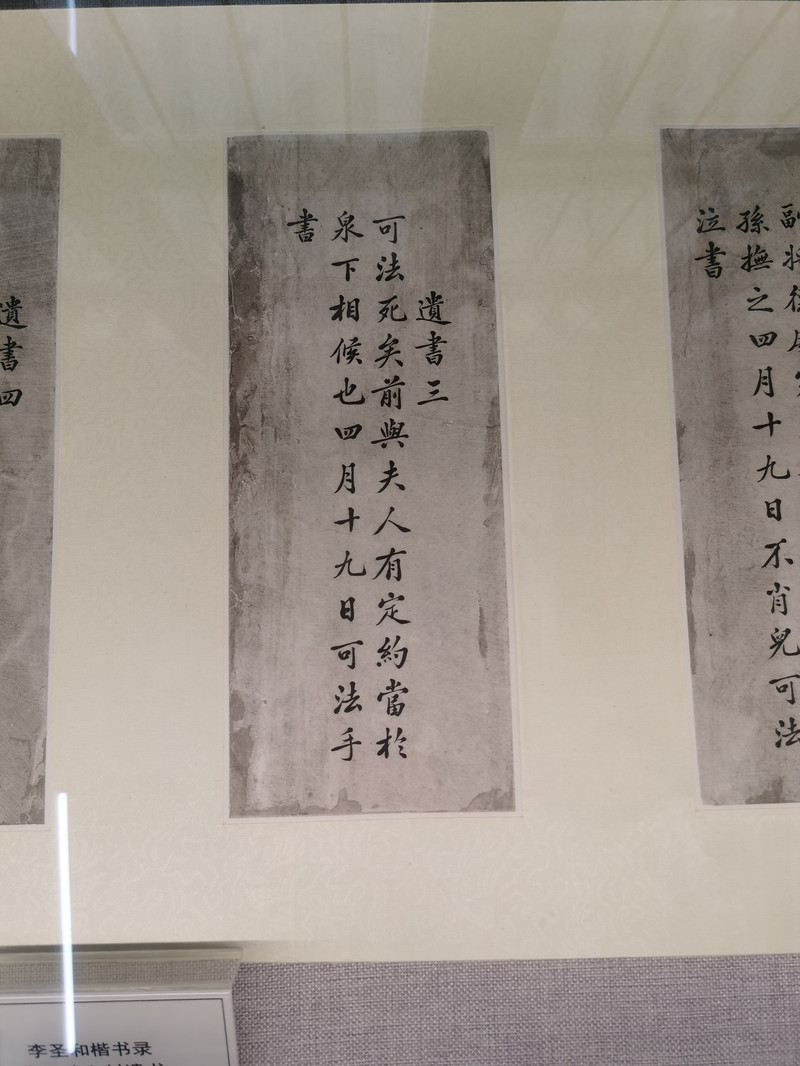 副將
孫撫之四月十九日不肖兒可法
泣書
遺書三
可法死矣前與夫人有定約當於
泉下相候也四月十九日可法手
書
遺書四
李圣和楷书录